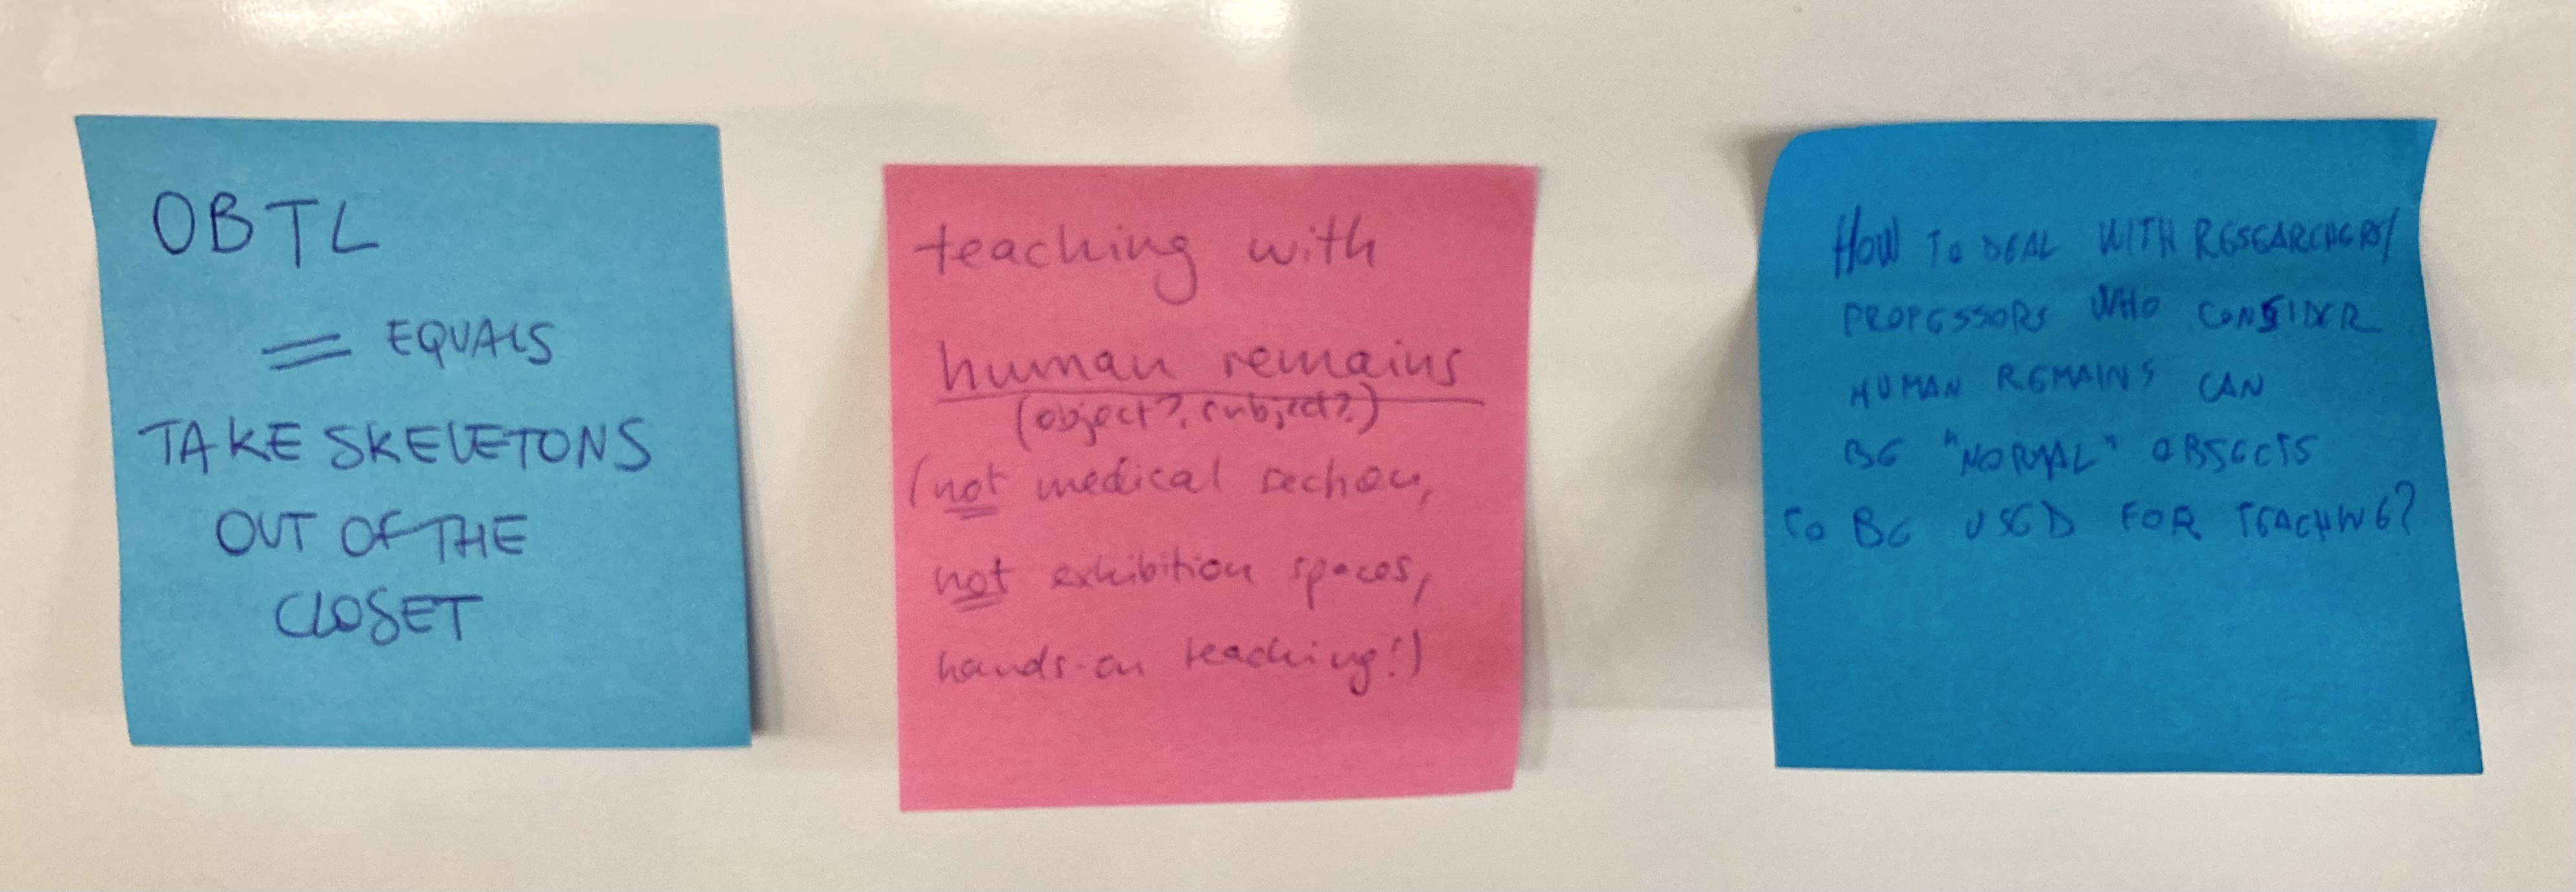 OBTL
= EQUALS
TAKE SKELETONS
OUT OF THE
CLOSET
teaching with
human remains
(object?, subject?)
(not medical section,
not exhibition spaces,
hands-on teaching!)
HOW TO DEAL WITH RESEARCHERS/
PROFESSORS WHO CONSIDER
HUMAN REMAINS CAN
BE "NORMAL" OBJECTS
TO BE USED FOR TEACHING?